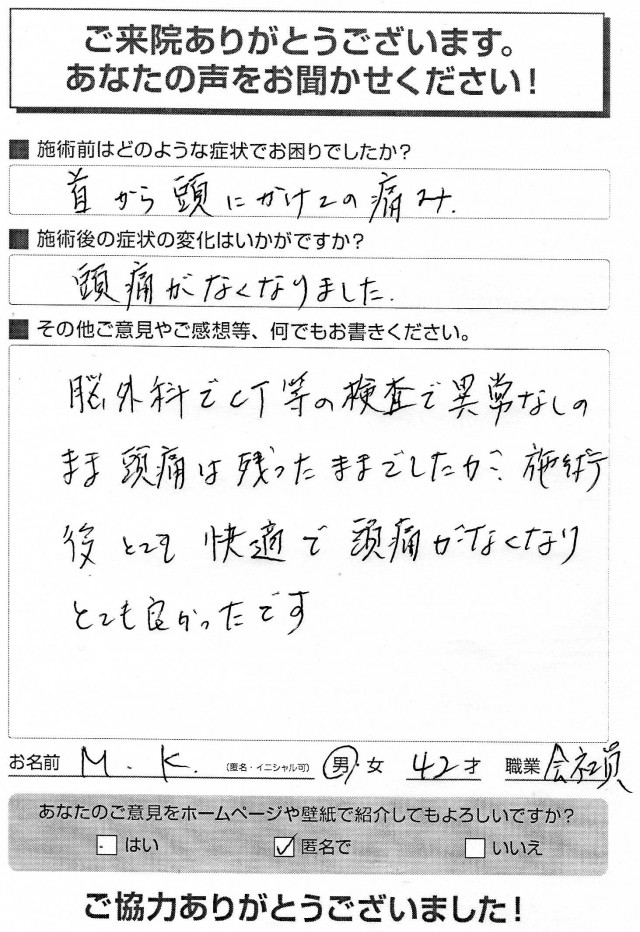 ご来院ありがとうございます。
あなたの声をお聞かせください！
■ 施術前はどのような症状でお困りでしたか？
首から頭にかけての痛み.
■ 施術後の症状の変化はいかがですか？
頭痛がなくなりました.
■ その他ご意見やご感想等、何でもお書きください。
脳外科でCT等の検査で異常なしの
まま頭痛は残ったままでしたが、施術
後とても快適で頭痛がなくなり
とても良かったです
お名前 M. K. （匿名・イニシャル可） 男・女 42才 職業 会社員
あなたのご意見をホームページや壁紙で紹介してもよろしいですか？
□ はい ☑ 匿名で □ いいえ
ご協力ありがとうございました！